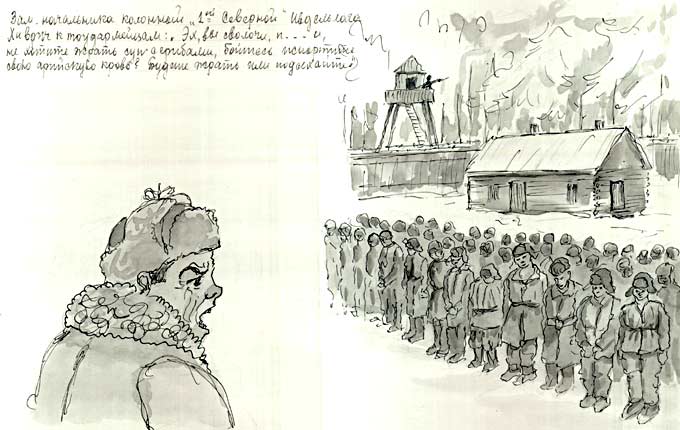 Зам. начальника колонны „2ой Северной" Ивдельлага
Хиврич к трудармейцам: „Эх, вы сволочи, п....ы,
не хотите жрать суп с грибами, боитесь испортить
свою арийскую кровь? Будете жрать или подыхайте"